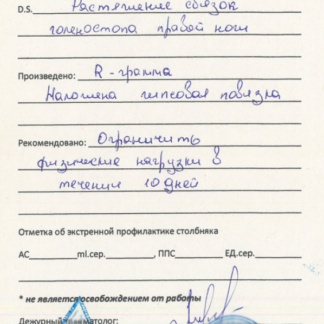 D.S. Растяжение связок
голеностопа правой ноги
Произведено: R-грамма
Наложена гипсовая повязка
Рекомендовано: Ограничить
физические нагрузки в
течении 10 дней
Отметка об экстренной профилактике столбняка
АС ml.сер. , ППС ЕД.сер.
* не является освобождением от работы
Дежурный